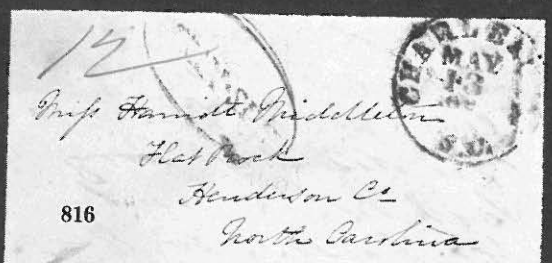 12
CHARLES
MAY
13
S.C.
Miss Harriott Middleton
Flat Rock
Henderson Co
North Carolina
816